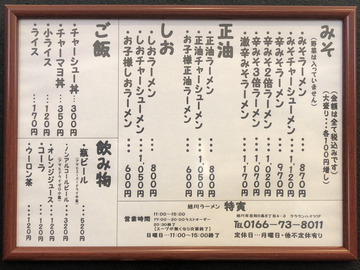 みそ
(野菜は入っていません)
(金額は全て税込みです)
(大盛り・・各100円増し)
みそラーメン・・・870円
みそチャーシューメン・・
辛みそラーメン・・
辛みそ2倍ラーメン・・
辛みそ3倍ラーメン・・
激辛みそラーメン・・
正油
正油ラーメン・・・850円
正油チャーシューメン・・1,050円
お子様正油ラーメン・・・600円
しお
しおラーメン・・・850円
しおチャーシューメン・・1,050円
お子様しおラーメン・・・600円
ご飯
チャーシュー丼・・・300円
チャーマヨ丼・・・350円
小ライス・・・120円
ライス・・・170円
飲み物
・瓶ビール・・・520円
・ノンアルコールビール・・・320円
・オレンジジュース・・・120円
・コーラ・・・120円
・ウーロン茶・・・120円
旭川ラーメン 特寅
TEL0166-73-8011
定休日--月曜日・他不定休有り
営業時間
11:00~15:00
17:00~20:00ラストオーダー
20:30終了
(スープが無くなり次第終了)
日曜日--11:00~15:00終了